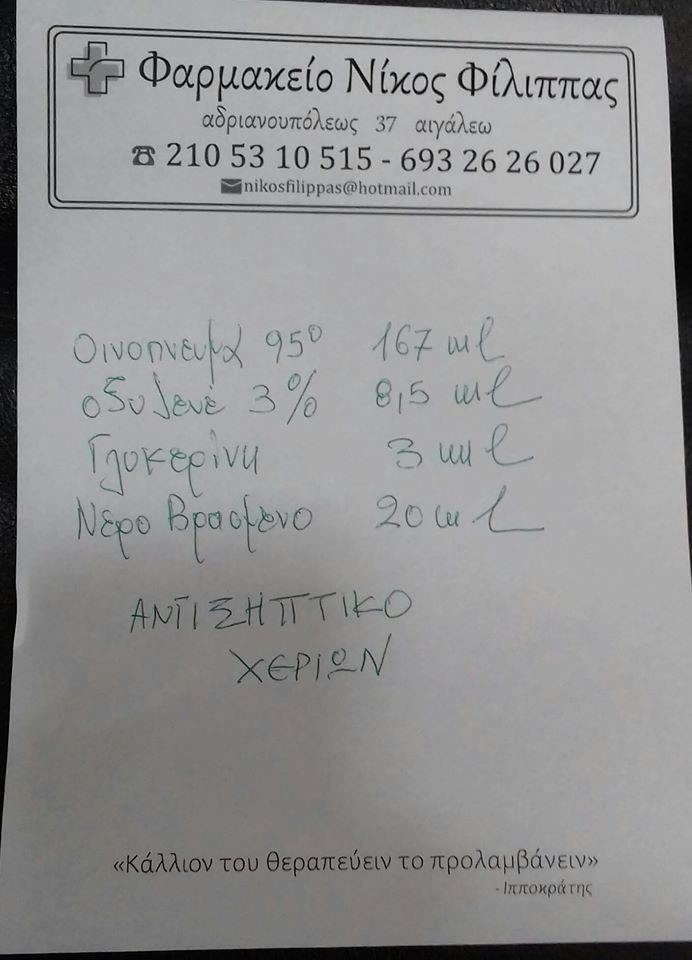 Φαρμακείο Νίκος Φίλιππας
αδριανουπόλεως 37 αιγάλεω
☎ 210 53 10 515 - 693 26 26 027
nikosfilippas@hotmail.com
Οινοπνευμα 95° 167 ml
οξυζενέ 3% 8,5 ml
Γλυκερίνη 3 ml
Νέρο Βρασμενο 20 ml
ΑΝΤΙΣΗΠΤΙΚΟ
ΧΕΡΙΩΝ
«Κάλλιον του θεραπεύειν το προλαμβάνειν»
- Ιπποκράτης